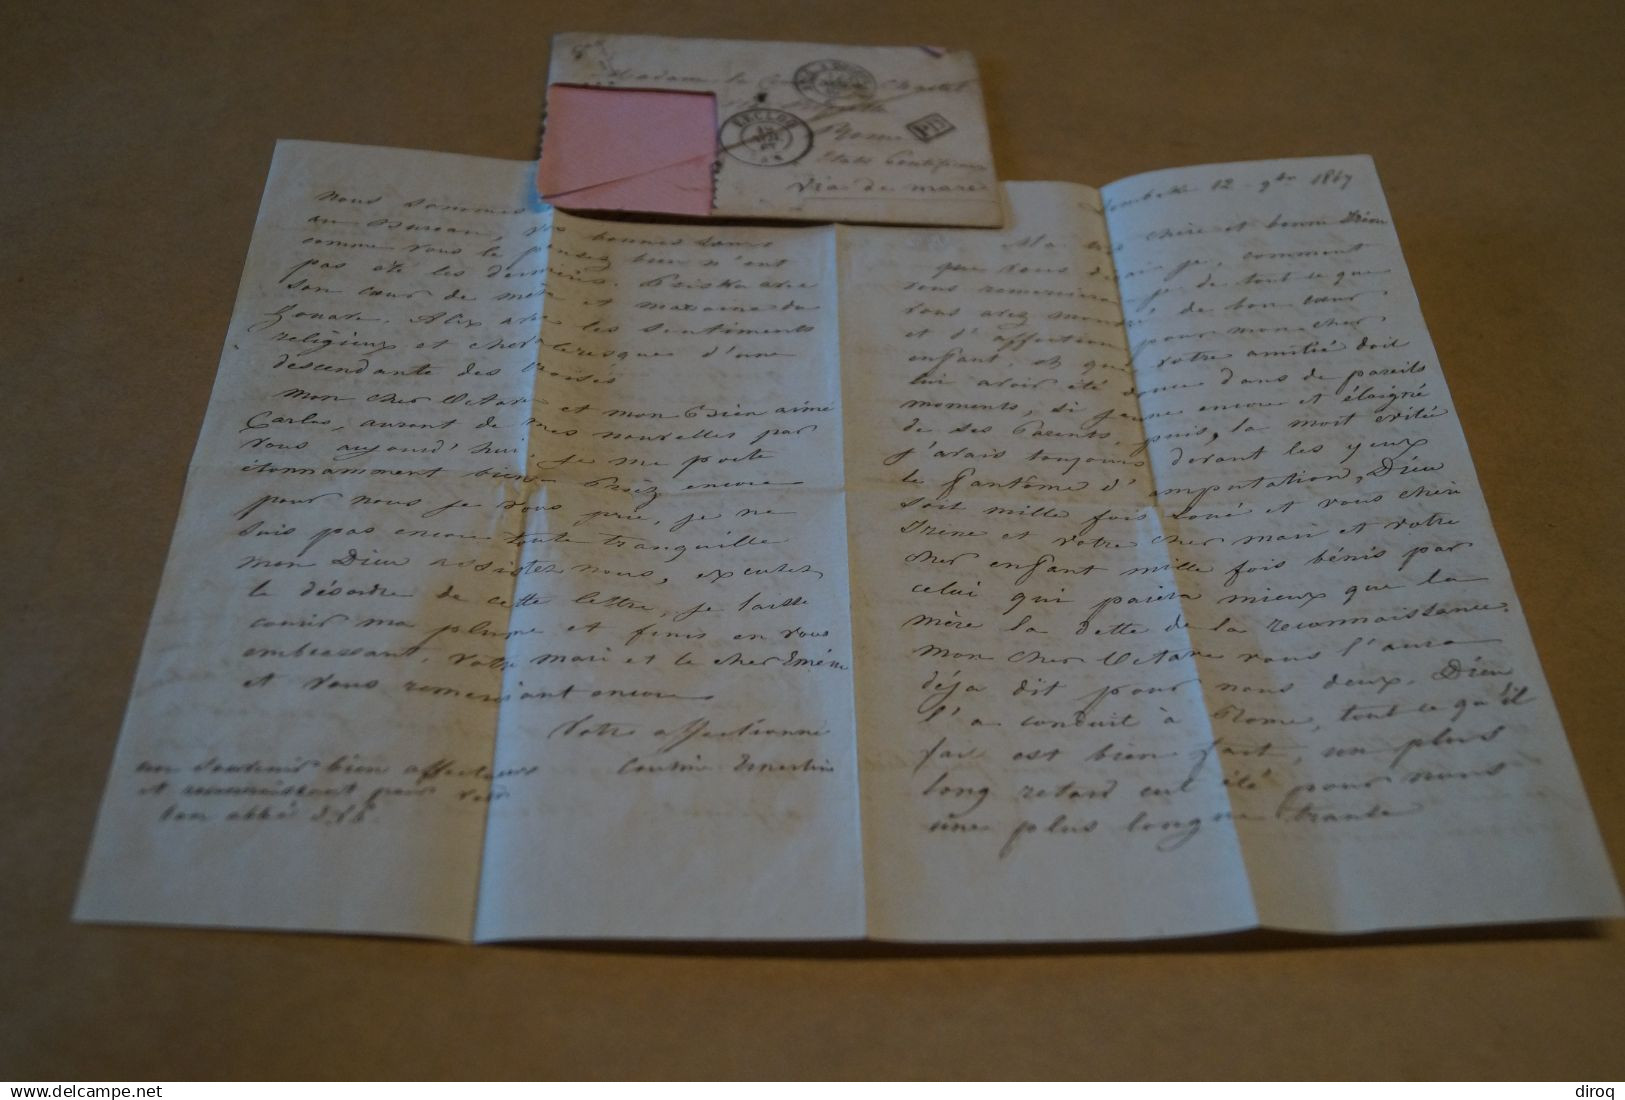 Madame la
ECLOO
PD
Rome
Etats Pontificaux
Via de mare
12 9bre 1867
Ma très chère et bonne Irène
que vous dirais je, comment
vous remercierai je de tout ce que
vous avez montré, de bon cœur
et d'affection pour mon cher
enfant, et que votre amitié doit
lui avoir été douce dans de pareils
moments, si jeune encore et éloigné
de ses Parents, puis, la mort évitée
j'avais toujours devant les yeux
le fantôme d'amputation, Dieu
soit mille fois Loué et vous chère
Irène et votre cher mari et votre
cher enfant mille fois bénis par
celui qui paiera mieux que la
mère la dette de la reconnaissance.
mon cher Octave vous l'aura
déja dit pour nous deux. Dieu
l'a conduit à Rome, tout ce qu'il
fait est bien fait, un plus
long retard eut été pour nous
une plus longue
nous sommes
au Bureau, vos bonnes
comme vous le pensez bien n'ont
pas été les dernières. Priska avec
son cœur de mère et
Zouave. Alix avec les sentiments
religieux et chevaleresques d'une
descendante des Croisés
mon cher Octave et mon Bien aimé
Carlos, auront de mes nouvelles par
vous aujourd'hui je me porte
étonnamment bien - Priez encore
pour nous je vous prie, je ne
suis pas encore toute tranquille
mon Dieu assistez nous, excusez
le désordre de cette lettre, je laisse
courir ma plume et finis en vous
embrassant, votre mari et le cher
et vous remerciant encore
Votre affectionnée
Cousine Ernestine
un souvenir bien affectueux
et reconnaissant pour votre
bon abbé
diroq